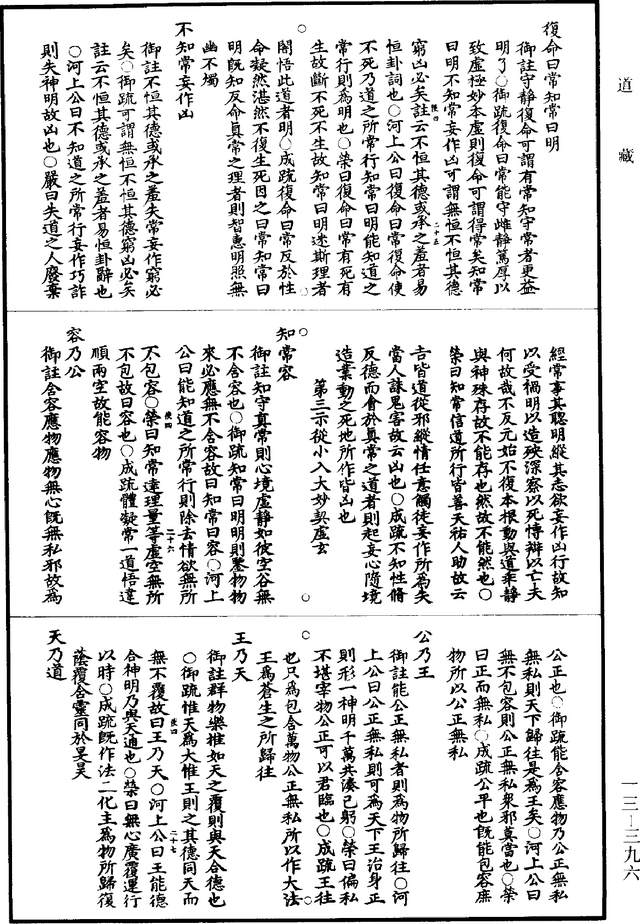 道藏
復命曰常知常曰明
御註守靜復命可謂有常知守常者更益
明了○御疏復命曰常能守雌靜篤厚以
致虛極妙本虛則復命可謂得常矣知常
曰明不知常妄作凶可謂無恒不恒其德
二十五
窮凶必矣註云不恒其德或承之羞者易
恒卦詞也○河上公曰復命曰常復命使
不死乃道之所常行知常曰明能知道之
常行則為明也○榮曰復命曰常有死有
生故斷不死不生故知常曰明迷斯理者
闇悟此道者明○成疏復命曰常反於性
命凝然湛然不復生死因之曰常知常曰
明既知反命真常之理者則智惠明照無
幽不燭
不知常妄作凶
御註不恒其德或承之羞失常妄作窮必
矣○御疏可謂無恒不恒其德窮凶必矣
註云不恒其德或承之羞者易恒卦辭也
○河上公曰不知道之所常行妄作巧詐
則失神明故凶也○嚴曰失道之人廢棄
經常事其聰明縱其志欲妄作凶行故知
以受禍明以造殃深察以死慱辯以亡夫
何故哉不反元始不復本根動與道乖靜
與神殊存故不能存也然故不能然也○
榮曰知常信道所行皆善天祐人助故云
吉皆道從邪縱情任意觸徒妄作所為失
當人誅鬼害故云凶也○成疏不知性脩
反德而會於真常之道者則起妄心隨境
造業動之死地所作皆凶也
第三示從小入大妙契虛玄
知常容
御註知守真常則心境虛靜如彼空谷無
不含容也○御疏知常曰明明則鑒物物
來必應無不含容故曰知常曰容○河上
公曰能知道之所常行則除去情欲無所
二十六
不包容○榮曰知常達理量等虛空無所
不包故曰容也○成疏體凝常一道悟違
順兩空故能容物
容乃公
御註含容應物應物無心既無私邪故為
公正也○御疏能含容應物乃公正無私
無私則天下歸往是為王矣○河上公曰
無不包容則公正無私衆邪莫當也○榮
曰正而無私○成疏公平也既能包容庶
物所以公正無私
公乃王
御註能公正無私者則為物所歸往○河
上公曰公正無私則可為天下王治身正
則形一神明千萬共湊己躬○榮曰偏私
不堪宰物公正可以君臨也○成疏王往
也只為包含萬物公正無私所以作大法
王為蒼生之所歸往
王乃天
御註群物樂推如天之覆則與天合德也
○御疏惟天為大惟王則之其德同天而
二十七
無不覆故曰王乃天○河上公曰王能德
合神明乃與天通也○榮曰無心廣覆運行
以時○成疏既作法二化主為物所歸復
蔭覆含靈同於旻昊
天乃道
一三—三九六